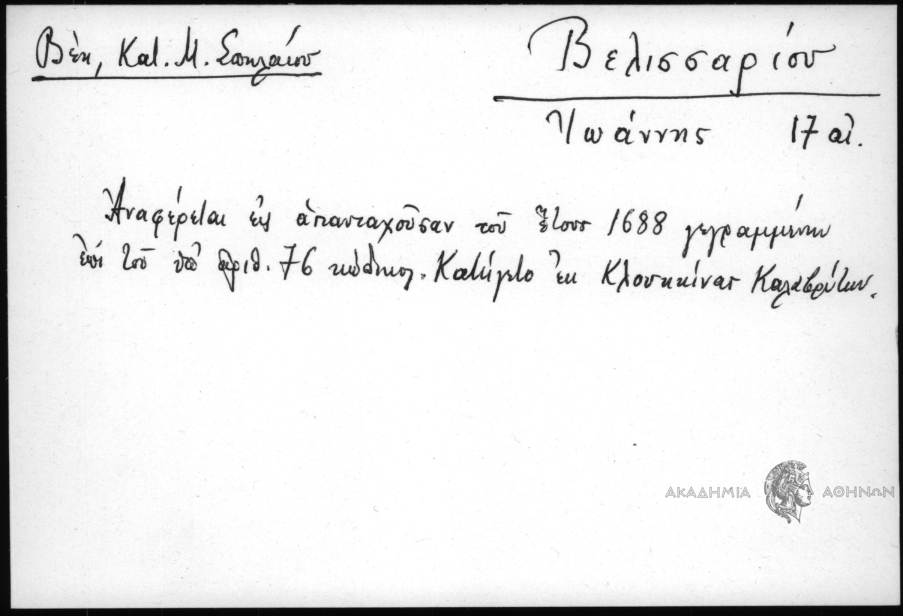 Βέη, Κατ. Μ. Σπηλαίου
Βελισσαρίου
Ἰωάννης 17 αἰ.
Ἀναφέρεται εἰς ἀπανταχοῦσαν τοῦ ἔτους 1688 γεγραμμένην
ἐπί τοῦ ὑπ' ἀριθ. 76 κώδικος. Κατήγετο ἐκ Κλουκίνας Καλαβρύτων.
ΑΚΑΔΗΜΙΑ ΑΘΗΝΩΝ